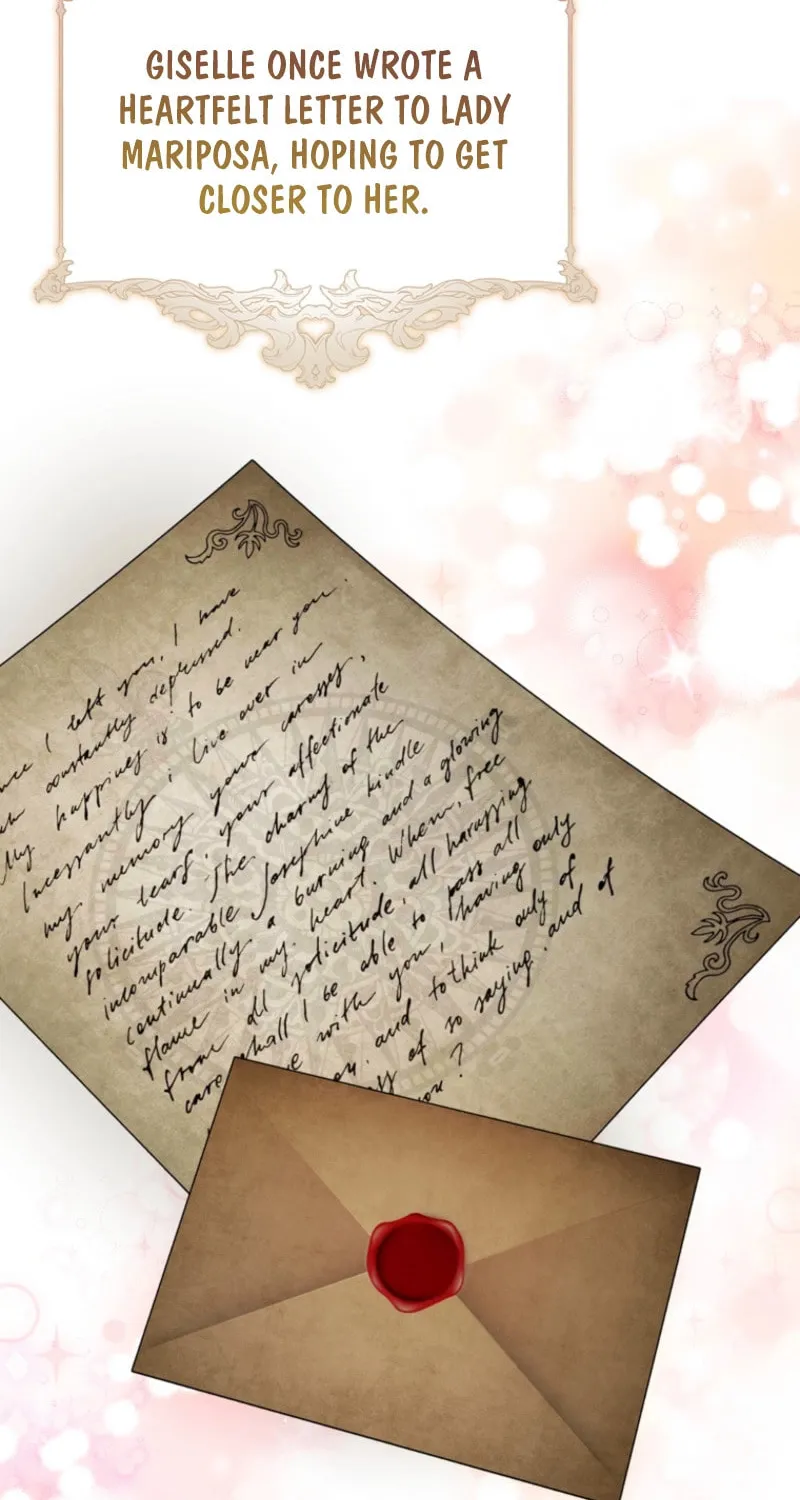 GISELLE ONCE WROTE A
HEARTFELT LETTER TO LADY
MARIPOSA, HOPING TO GET
CLOSER TO HER.
I left you, I have
constantly depressed.
My happiness is to be near you.
Incessantly i live over in
my memory your caresses,
your tears, your affectionate
solicitude. The charms of the
incomparable Josephine kindle
continually a burning and a glowing
flame in my heart. When, free
from all solicitude, all harassing
care shall I be able to pass all
with you, having only
and to think only of
of so saying, and of
?